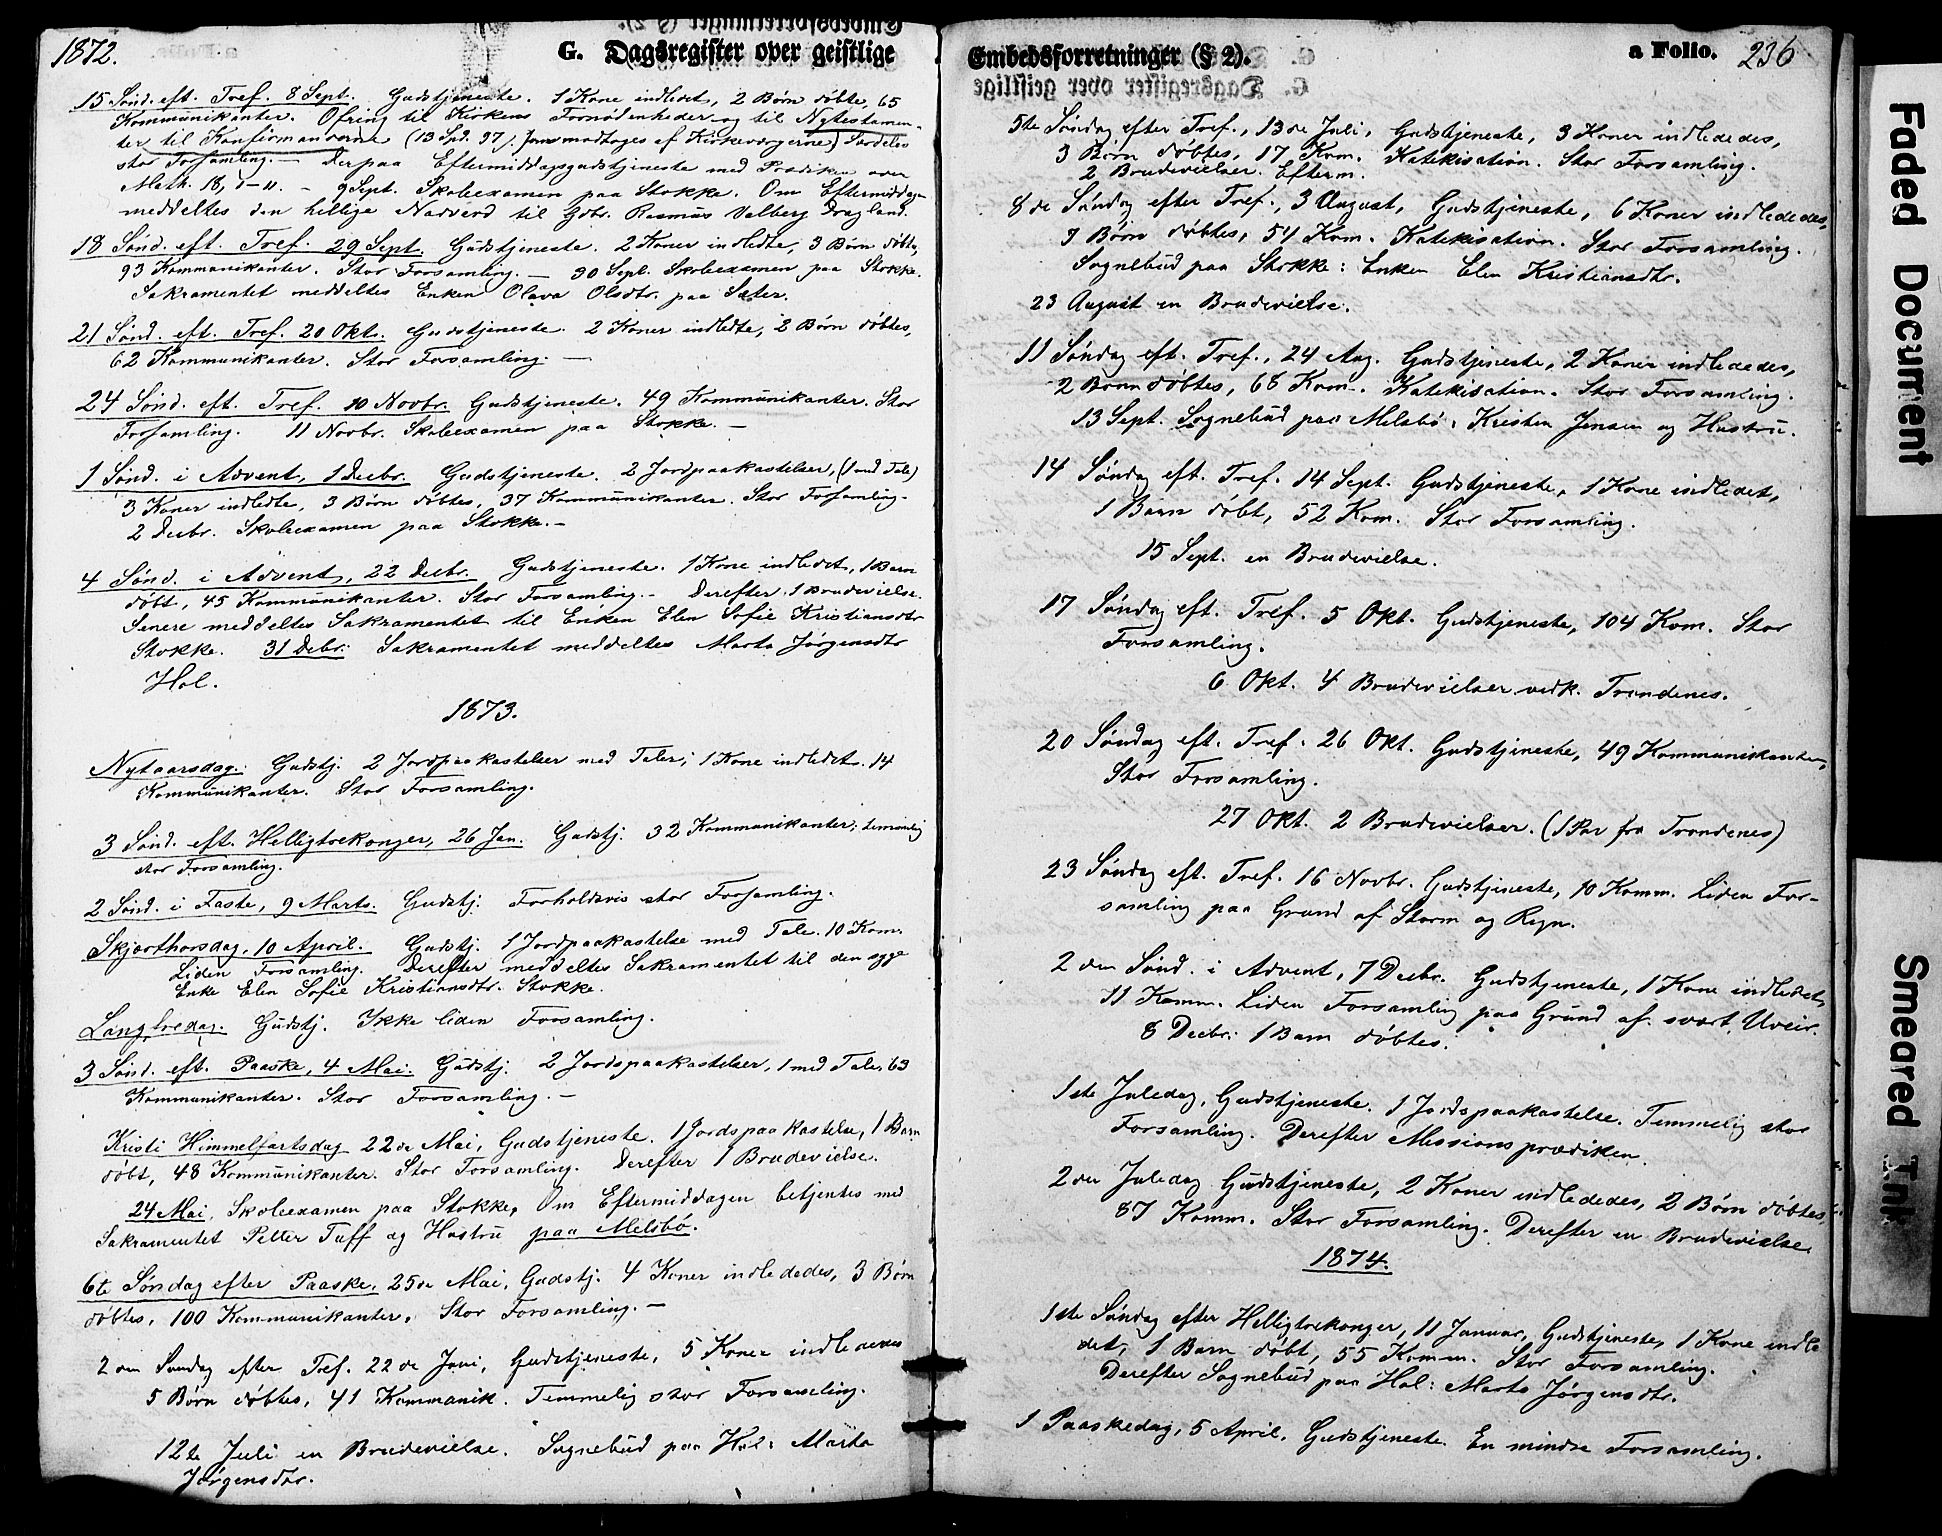 1872.
G. Dagsregister over geistlige
15 Sønd. eft. Tref. 8 Sept. Gudstjeneste. 1 Kone indledet, 2 Børn døbte, 65
Kommunikanter. Ofring til Kirkens Fornødenheder og til Nytestamen-
ter til Konfirmanderne (13 Spd. 97 modtoges af Kirkeværgerne)
stor Forsamling. — Derpaa Eftermiddagsgudstjeneste med Prædiken over
Math. 18, 1-11. — 9 Sept. Skoleexamen paa Stokke. Om Eftermiddagen
meddeltes den hellige Nadverd til Gdbr. Rasmus Valberg Dragland.
18 Sønd. eft. Tref. 29 Sept. Gudstjeneste. 2 Koner indledte, 3 Børn døbte,
93 Kommunikanter. Stor Forsamling. — 30 Sept. Skoleexamen paa Stokke.
Sakramentet meddeltes Enken Olava Olsdtr. paa Sæter.
21 Sønd. eft. Tref. 20 Okt. Gudstjeneste. 2 Koner indledte, 2 Børn døbtes,
62 Kommunikanter. Stor Forsamling. —
24 Sønd. eft. Tref. 10 Novbr. Gudstjeneste. 49 Kommunikanter. Stor
Forsamling. 11 Novbr. Skoleexamen paa Stokke. —
1 Sønd. i Advent, 1 Decbr. Gudstjeneste. 2 Jordpaakastelser, (1 med Tale)
3 Koner indledte, 3 Børn døbtes, 37 Kommunikanter. Stor Forsamling.
2 Decbr. Skoleexamen paa Stokke. —
4 Sønd. i Advent, 22 Decbr. Gudstjeneste. 1 Kone indledet, 1 Barn
døbt, 45 Kommunikanter. Stor Forsamling. — Derefter 1 Brudevielse.
Senere meddeltes Sakramentet til Enken Elen Sofie Kristiansdtr
Stokke. 31 Debr. Sakramentet meddeltes Marta Jørgensdtr
Hol.
1873.
Nytaarsdag. Gudstj. 2 Jordpaakastelser med Taler; 1 Kone indledet. 14
Kommunikanter. Stor Forsamling.
3 Sønd. eft. Helligtrekonger, 26 Jan. Gudstj. 32 Kommunikanter; temmelig
stor Forsamling.
2 Sønd. i Faste, 9 Marts. Gudstj. Forholdsvis stor Forsamling.
Skjærthorsdag, 10 April. Gudstj. 1 Jordpaakastelse med Tale. 10 Kom.
Liden Forsamling. Derefter meddeltes Sakramentet til den syge
Enke Elen Sofie Kristiansdtr. Stokke.
Langfredag. Gudstj. Ikke liden Forsamling.
3 Sønd. eft. Paaske, 4 Mai. Gudstj. 2 Jordspaakastelser, 1 med Tale, 63
Kommunikanter. Stor Forsamling. —
Kristi Himmelfartsdag 22de Mai, Gudstjeneste. 1 Jordspaakastelse, 1 Barn
døbt, 48 Kommunikanter. Stor Forsamling. Derefter 1 Brudevielse.
24 Mai, Skoleexamen paa Stokke, Om Eftermiddagen betjentes med
Sakramentet Petter Tuff og Hustru paa Melsbø.
6te Søndag efter Paaske, 25de Mai, Gudstj. 4 Koner indlededes, 3 Børn
døbtes, 100 Kommunikanter. Stor Forsamling. —
2den Søndag efter Tref. 22de Juni, Gudstjeneste, 5 Koner indlededes
5 Børn døbtes, 41 Kommunik. Temmelig stor Forsamling.
12te Juli en Brudevielse. Sognebud paa Hol: Marta
Jørgensdtr.
Embedsforretninger (§ 2).
a Folio. 236
5te Søndag efter Tref., 13de Juli, Gudstjeneste, 3 Koner indlededes,
3 Børn døbtes, 17 Kom. Katekisation. Stor Forsamling.
2 Brudevielser. Efterm.
8de Søndag efter Tref., 3 August, Gudstjeneste, 6 Koner indlededes,
7 Børn døbtes, 54 Kom. Katekisation. Stor Forsamling.
Sognebud paa Stokke: Enken Elen Kristiansdtr.
23 August en Brudevielse.
11 Søndag eft. Tref., 24 Aug. Gudstjeneste, 2 Koner indlededes,
2 Børn døbtes, 68 Kom. Katekisation. Stor Forsamling.
13 Sept. Sognebud paa Melsbø: Kristen Jensen og Hustru.
14 Søndag eft. Tref. 14 Sept. Gudstjeneste, 1 Kone indledet,
1 Barn døbt, 52 Kom. Stor Forsamling.
15 Sept. en Brudevielse.
17 Søndag eft. Tref. 5 Okt. Gudstjeneste, 104 Kom. Stor
Forsamling.
6 Okt. 4 Brudevielser vedk. Trondenes.
20 Søndag eft. Tref. 26 Okt. Gudstjeneste, 49 Kommunikanter,
Stor Forsamling.
27 Okt. 2 Brudevielser. (1 Par fra Trondenes)
23 Søndag eft. Tref. 16 Novbr. Gudstjeneste, 10 Komm. Liden For-
samling paa Grund af Storm og Regn.
2den Sønd. i Advent, 7 Decbr. Gudstjeneste, 1 Kone indledet,
11 Komm. Liden Forsamling paa Grund af svært Uveir.
8 Decbr. 1 Barn døbtes.
1ste Juledag, Gudstjeneste. 1 Jordspaakastelse. Temmelig stor
Forsamling. Derefter Missionsprædiken.
2den Juledag Gudstjeneste, 2 Koner indlededes, 2 Børn døbtes,
87 Komm. Stor Forsamling. Derefter en Brudevielse
1874.
1ste Søndag efter Helligtrekonger, 11 Januar, Gudstjeneste, 1 Kone indle
det, 1 Barn døbt, 55 Komm. Stor Forsamling.
Derefter Sognebud paa Hol: Marta Jørgensdtr.
1 Paaskedag, 5 April, Gudstjeneste. En mindre Forsamling.
Faded Document
Smeared Ink